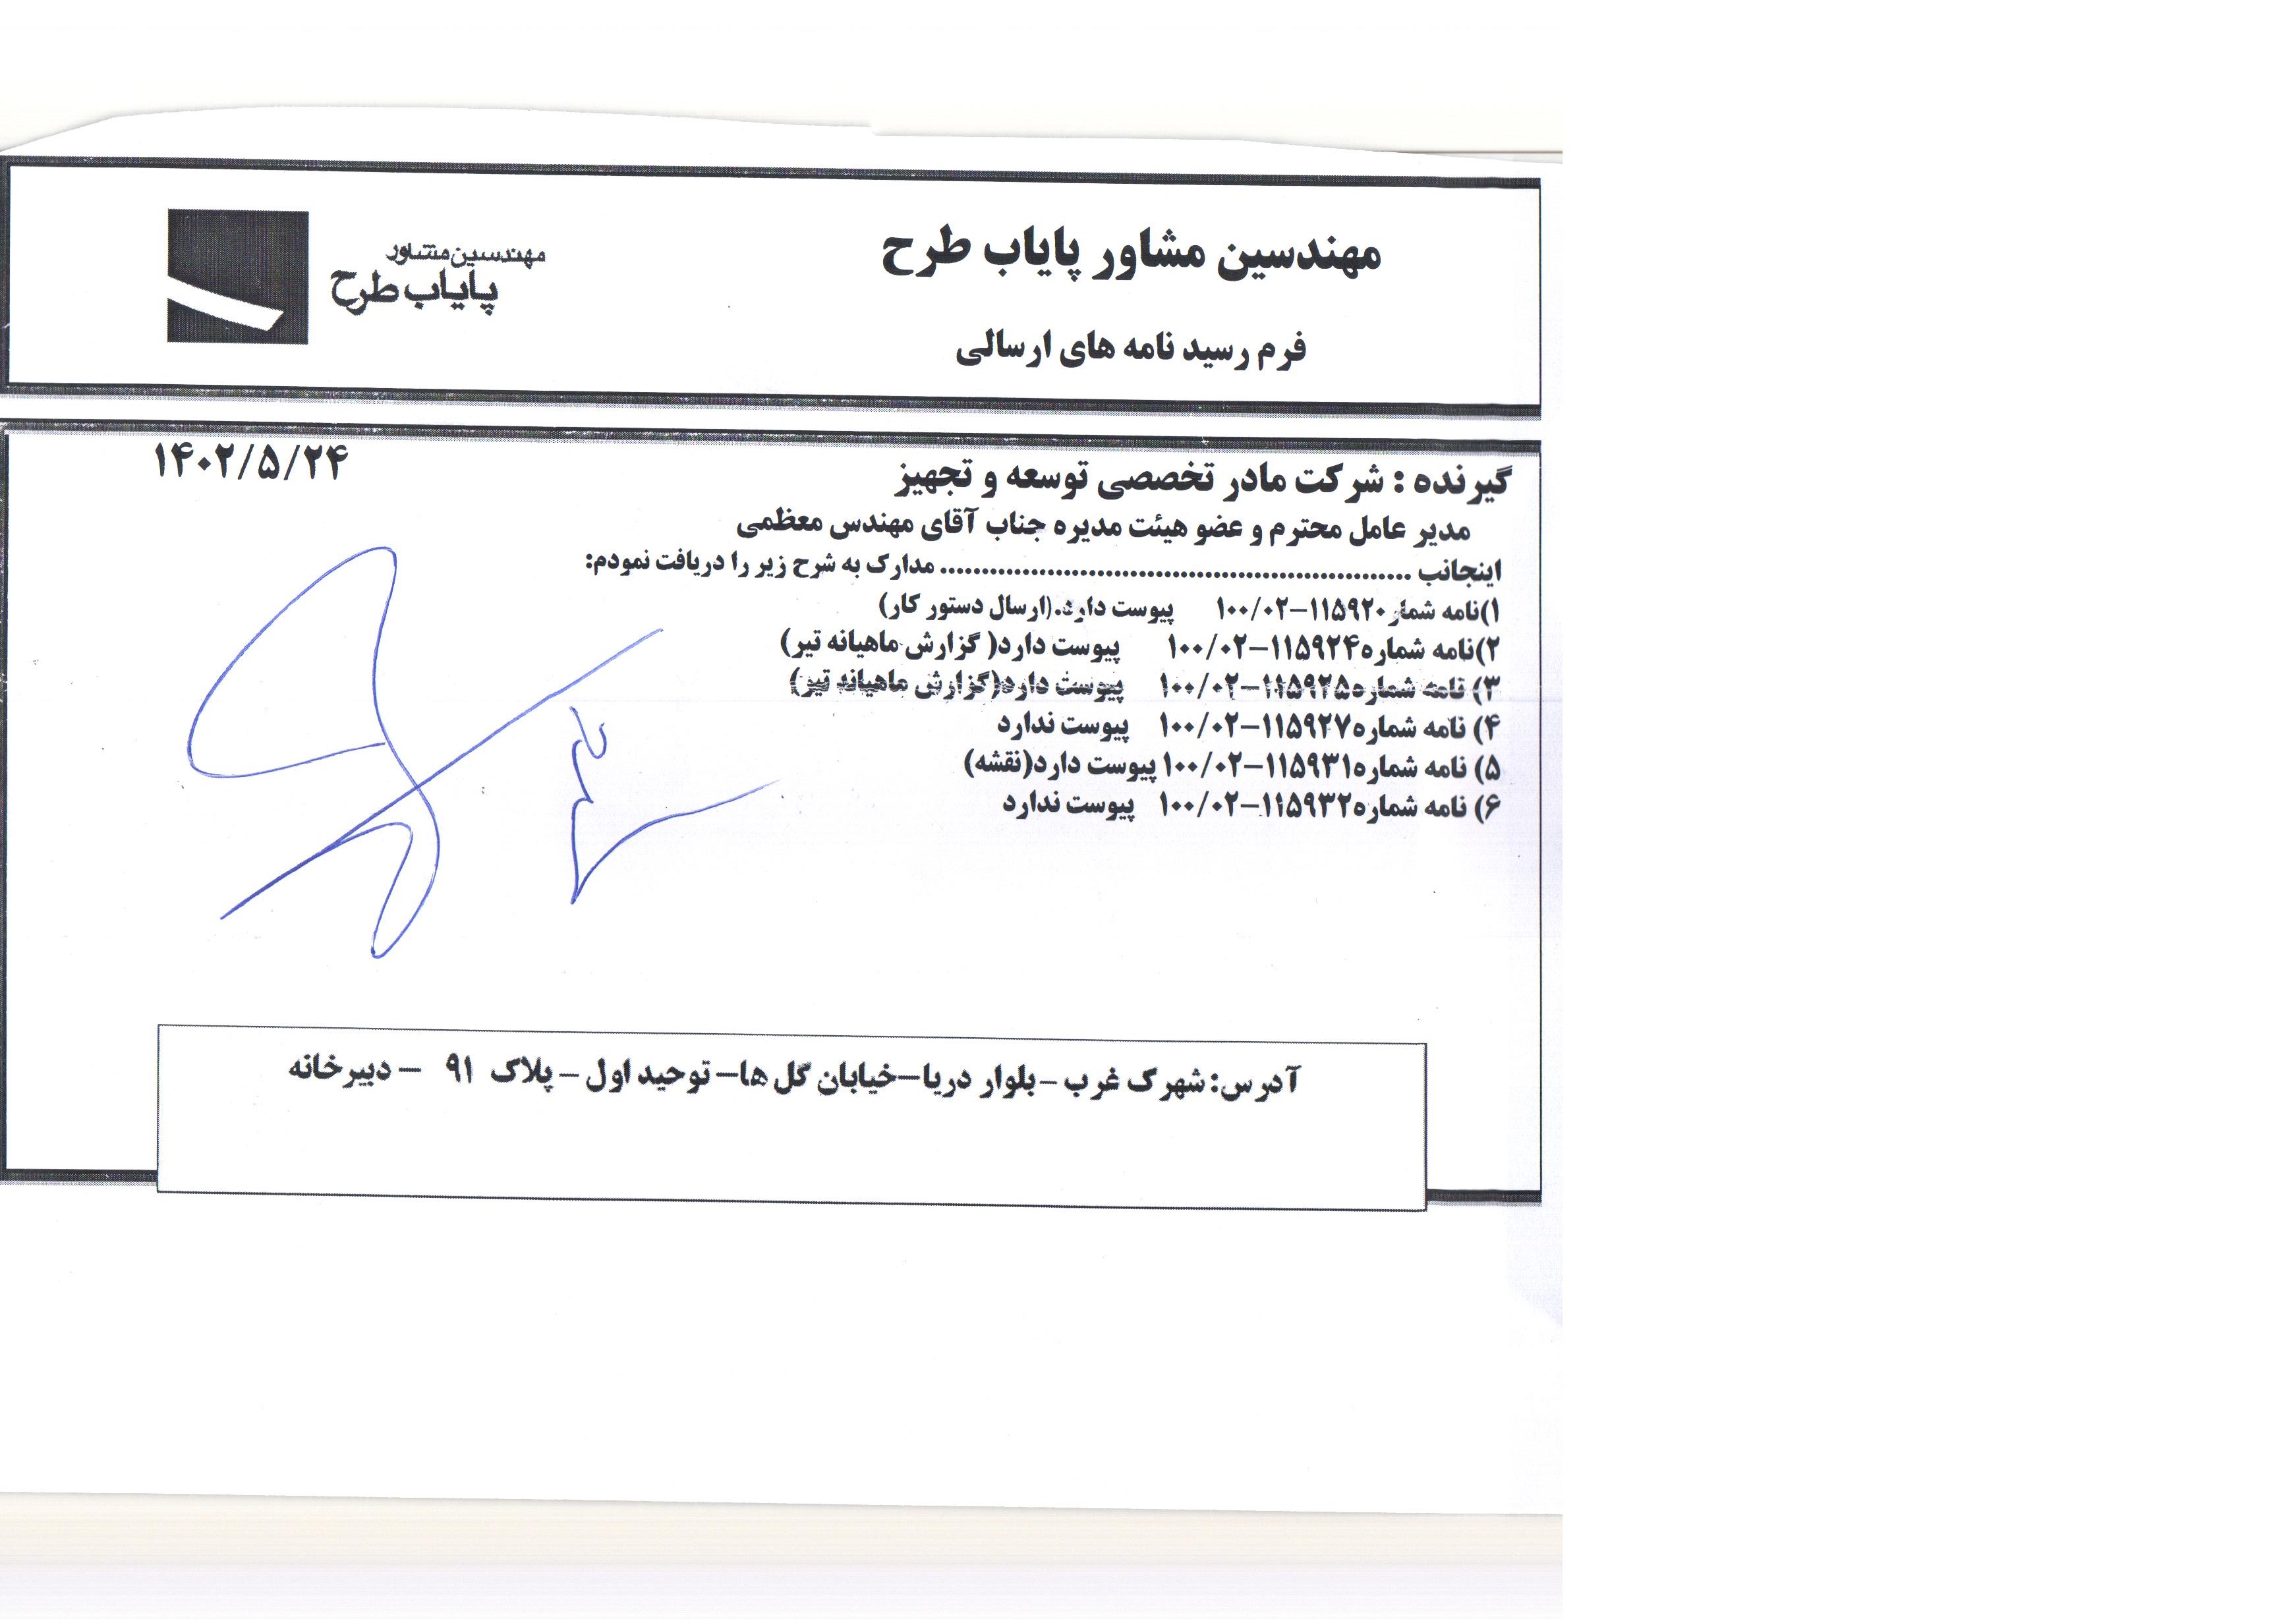 مهندسین مشاور پایاب طرح
مهندسین مشاور
پایاب طرح
فرم رسید نامه های ارسالی
۱۴۰۲/۵/۲۴
گیرنده : شرکت مادر تخصصی توسعه و تجهیز
مدیر عامل محترم و عضو هیئت مدیره جناب آقای مهندس معظمی
اینجانب ........................................................ مدارک به شرح زیر را دریافت نمودم:
۱)نامه شمار ۱۱۵۹۲۰-۱۰۰/۰۲ پیوست دارد.(ارسال دستور کار)
۲)نامه شماره۱۱۵۹۲۴-۱۰۰/۰۲ پیوست دارد( گزارش ماهیانه تیر)
۳) نامه شماره۱۱۵۹۲۵-۱۰۰/۰۲ پیوست دارد(گزارش ماهیانه تیر)
۴) نامه شماره۱۱۵۹۲۷-۱۰۰/۰۲ پیوست ندارد
۵) نامه شماره۱۱۵۹۳۱-۱۰۰/۰۲ پیوست دارد(نقشه)
۶) نامه شماره۱۱۵۹۳۲-۱۰۰/۰۲ پیوست ندارد
آدرس: شهرک غرب – بلوار دریا–خیابان گل ها– توحید اول – پلاک ۹۱ – دبیرخانه